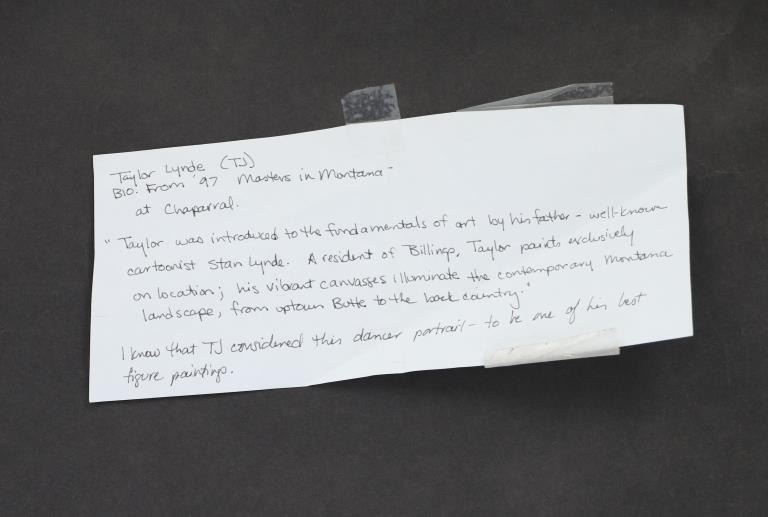 Taylor Lynde (TJ)
Bio: From '97 Masters in Montana -
at Chaparral.
"Taylor was introduced to the fundamentals of art by his father - well-known
cartoonist Stan Lynde. A resident of Billings, Taylor paints exclusively
on location; his vibrant canvasses illuminate the contemporary Montana
landscape, from uptown Butte to the back country."
I know that TJ considered this dancer portrait - to be one of his best
figure paintings.